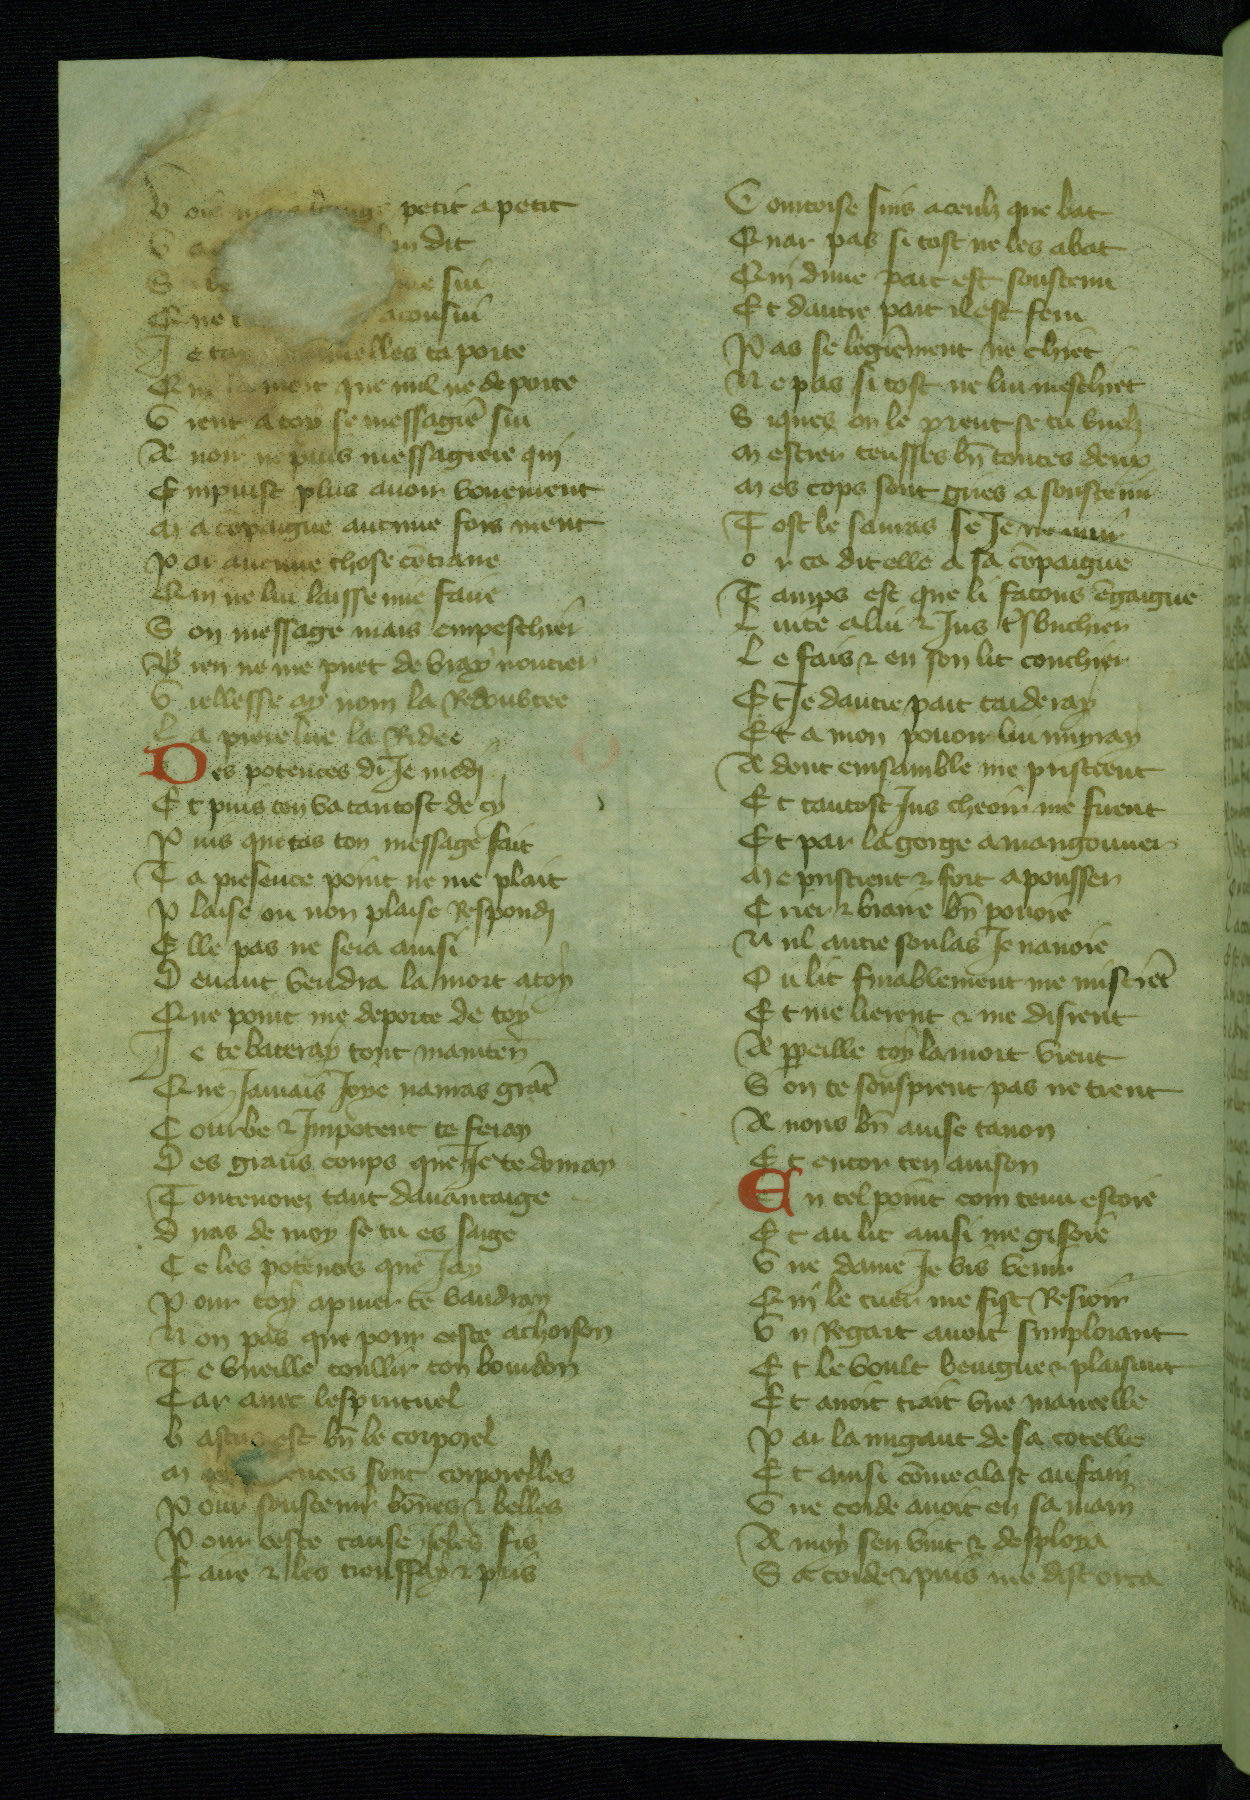 petit a petit
dit
me sui
Que aconsui
Je elles ta porte
Qui que nul ne deporte
Vient a toy se messagie͂ sui
Auoir ne puis messagiere qui
Empuist plus auoir bonement
Ma co͂paigne aucune fois ment
Par aucune chose co͂traire
Qui ne lui laisse mie faire
Son message mais empeschier
Rien ne me puet de vray noncier
Viellesse ay nom la Redoubtee
La pielue la Ridee
Des potences di Je medi
Et puis ten va tantost de cy
Puis que tas ton message fait
Ta presence point ne me plait
Plaise ou non plaise Respondi
Elle pas ne sera ainsi
Deuant vendra la mort a toy
Que point me deporte de toy
Je te bateray tout mainten͂
Que Jamais Joye nauras gra͂t
Courbe & Impotent te feray
Des graus coups que Je te donray
Tontenoiez tant dauantaige
Duras de moy se tu es saige
Ce les potences que Jay
Pour toy apuier te baudray
Non pas que pour ceste achoison
Te vueille toullir ton bourdon
Car auec lespirituel
bn͂ le corporel
sont corporelles
Pour soustenir bo͂nes & belles
Pour ceste cause Jeles fis
Faire & les troussay & pris
Courtoise suis a ceulz que bat
Quar pas si tost ne les abat
Qui dune part est soustenu
Et dautre part il est feru
Pas se legiere͂ment ne chiet
Ne pas si tost ne lui meschiet
Siques on le prent se tu vuelz
Mestier teusses bn͂ toutes deux
Mes cops sont gries a soustenir
Tost le sauras se Je ne muir
Or ca dit elle a sa co͂paigne
Tamps est que li facons e͂gaigne
Luite a lui & Jus t͂sbuchier
Le fais & en son lit couchier
Et Je dautre part taideray
Et a mon pouoir lui nuyray
A dont emsamble me pristrent
Et tantost Jus cheoir me firent
Et par la gorge a mangonner
Me pristrent & fort a pousser
Crier & braire bn͂ pouoie
Nul autre soulas Je nauoie
Ou lit finablement me mistre͂t
Et me lierent & me disrent
Appeille toy la mort vient
Son te sousprent pas ne tient
A nous bn͂ auise tauon
Et encor ten auison
En tel point com tenu estoie
Et au lit ainsi me gisoie
Vne dame Je vis venir
Qui le cuer me fist Resioir
Vn Regart auoit simploiant
Et le voult benigne & plaisant
Et auoit trait vne mamelle
Par la nugaut de sa cotelle
Et ainsi co͂me a last au fain
Vne corde auoit en sa main
A moy sen vint & desploya
Sa corde & puis me dist orca